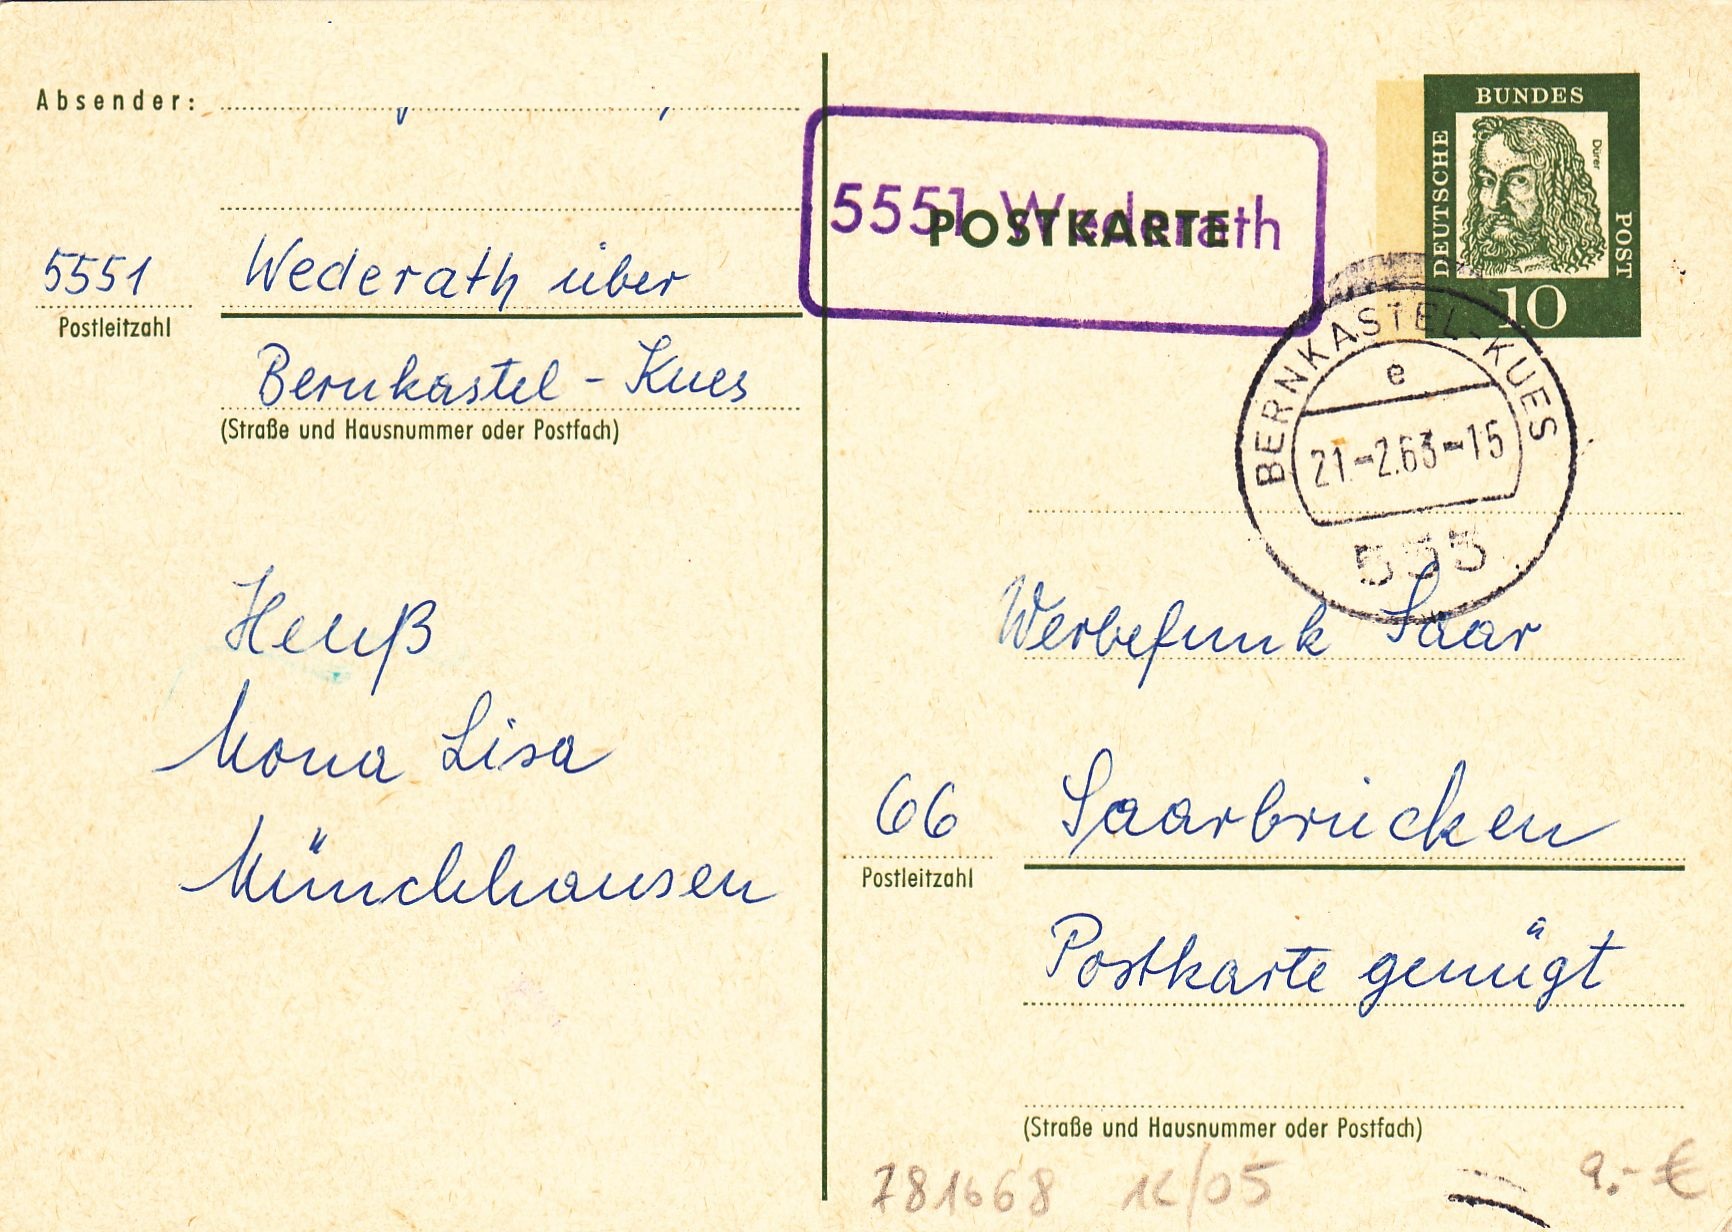 Absender:
5551 Wederath über
Postleitzahl
Bernkastel - Kues
(Straße und Hausnummer oder Postfach)
Heuß
Mona Lisa
Münchhausen
5551 Wederath
POSTKARTE
BUNDES
DEUTSCHE
POST
Dürer
10
BERNKASTEL-KUES
e
21.-2.63-15
553
Werbefunk Saar
66 Saarbrücken
Postleitzahl
Postkarte genügt
(Straße und Hausnummer oder Postfach)
781668 1K/05
9.- €